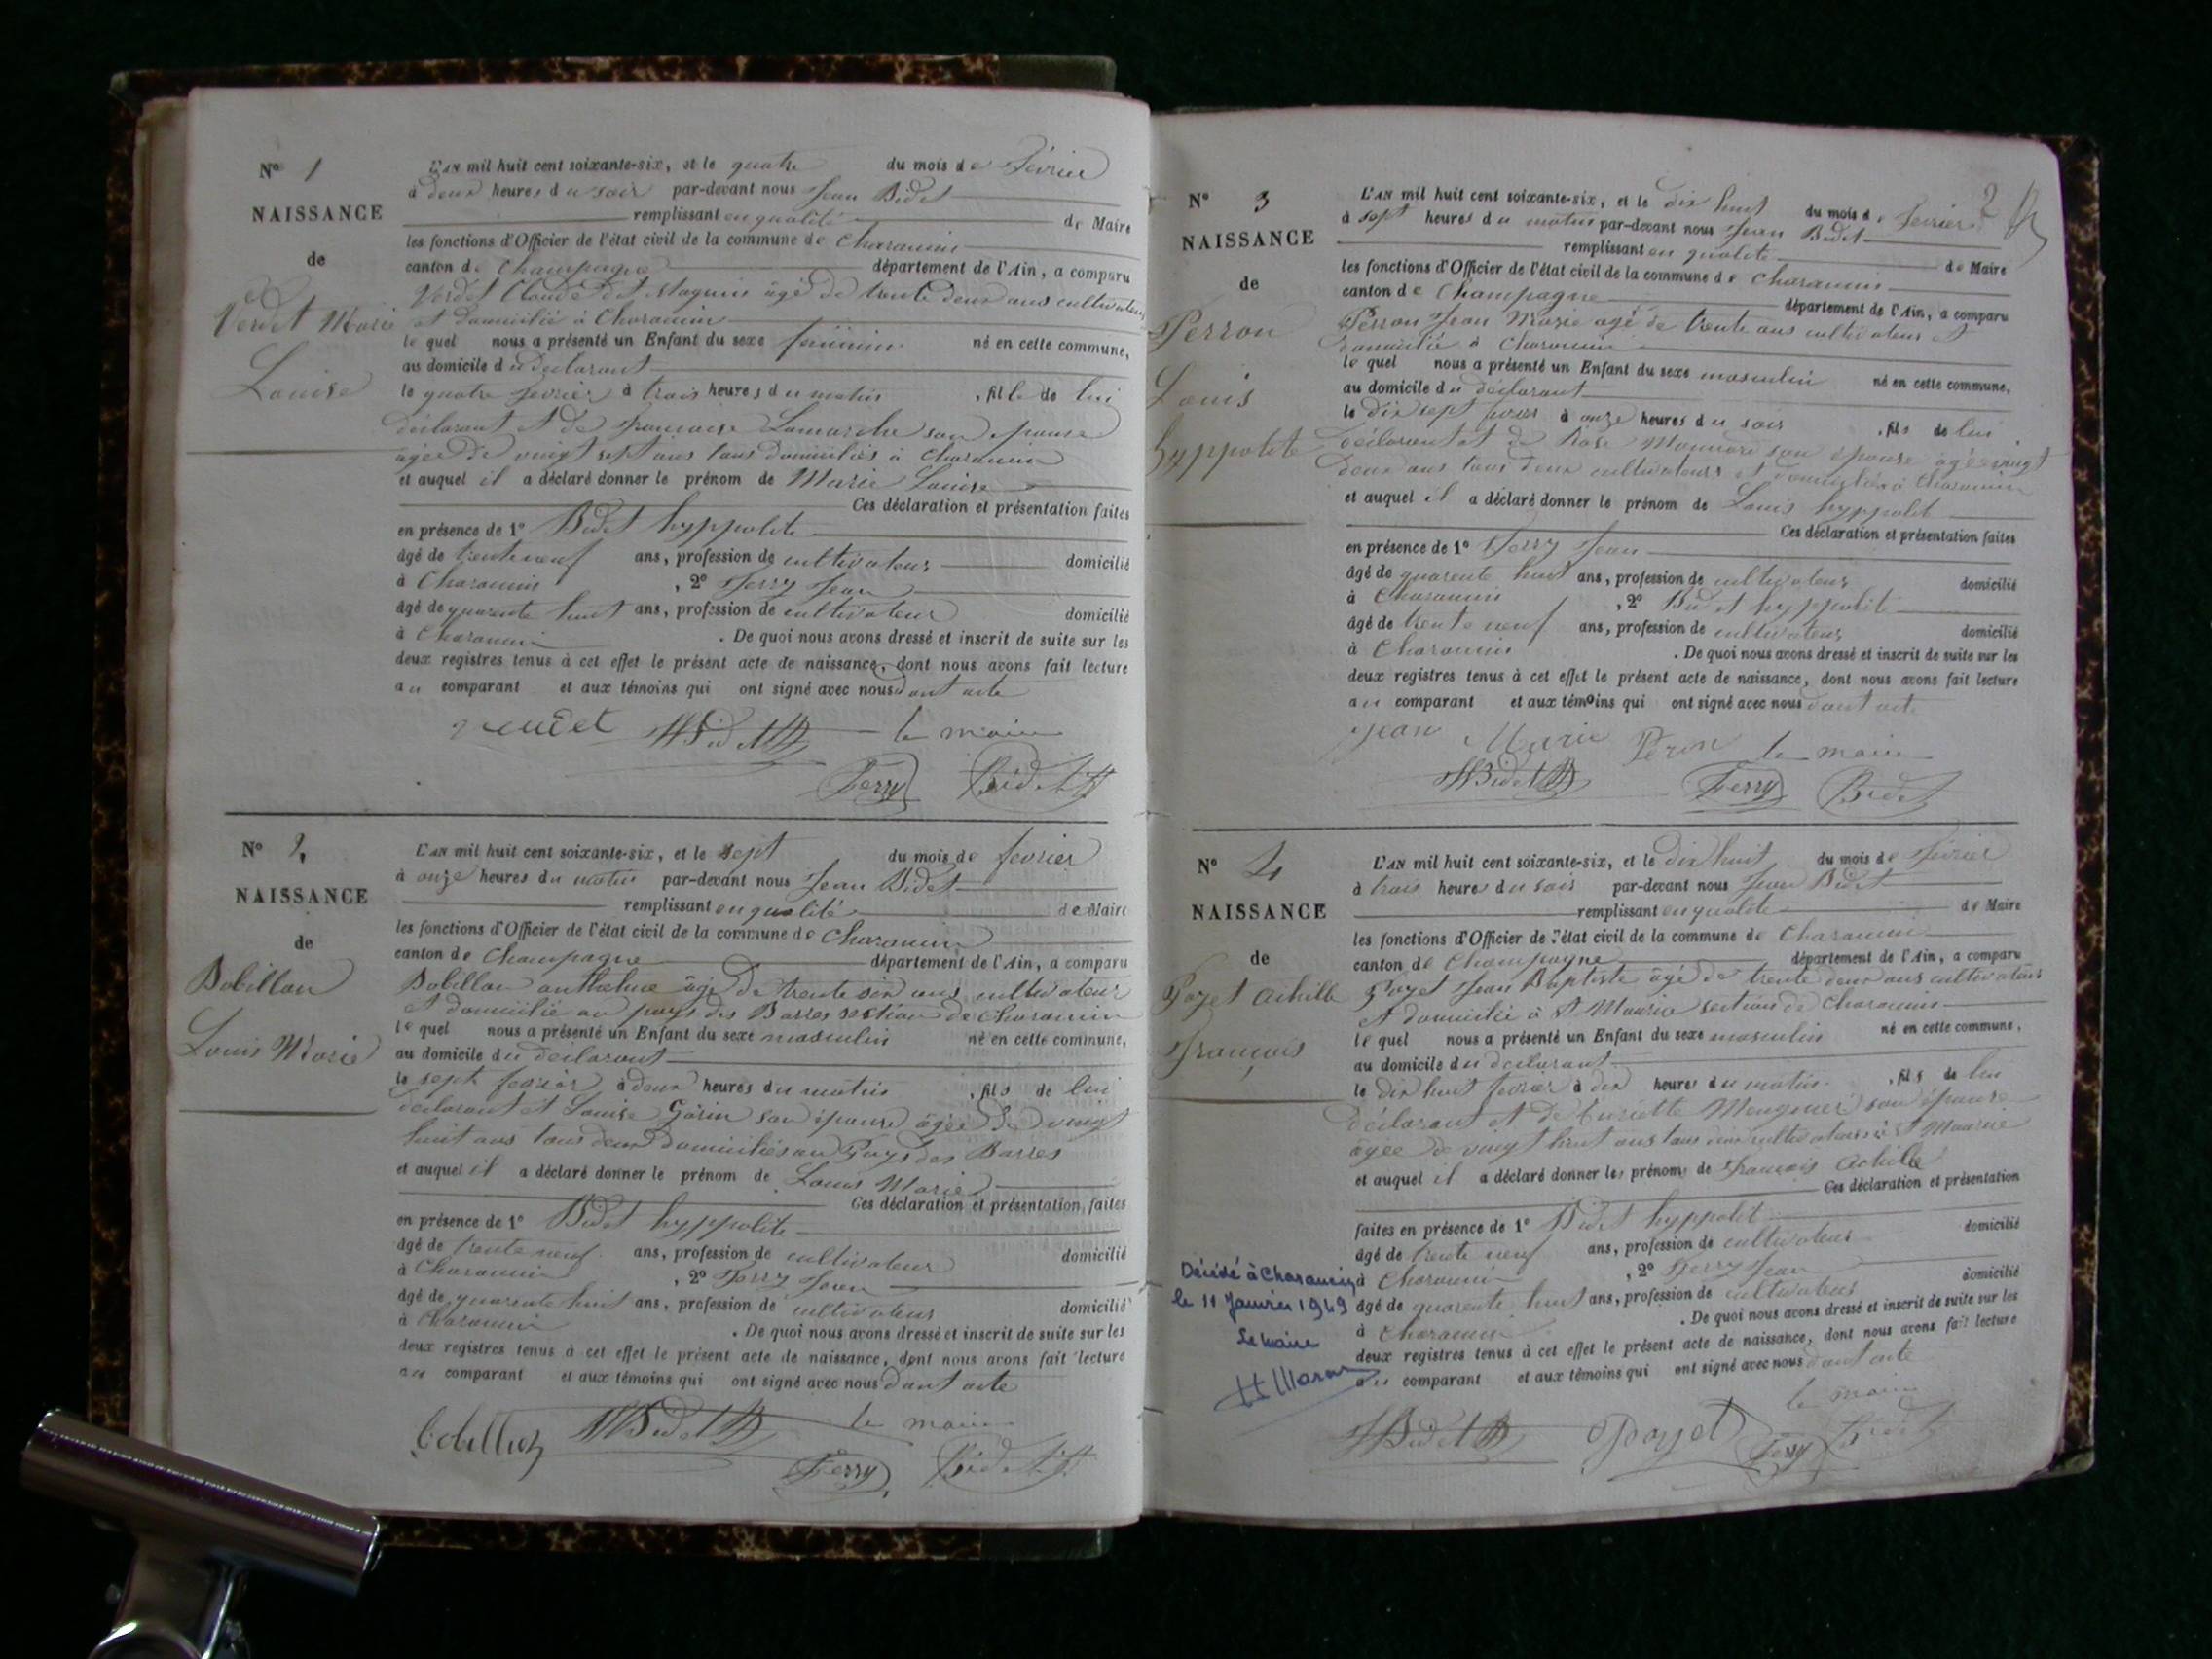 N° 1
NAISSANCE
de
Verdet Marie
Louise
L'AN mil huit cent soixante-six, et le quatre du mois de Février
à deux heures du soir par-devant nous Jean Bidet
remplissant en qualité de Maire
les fonctions d'Officier de l'état civil de la commune de Charancin
canton de Champagne département de l'Ain, a comparu
Verdet Claude dit Magnin âgé de trente deux ans cultivateur
et domicilié à Charancin
le quel nous a présenté un Enfant du sexe féminin né en cette commune,
au domicile du déclarant
le quatre fevrier à trois heures du matin, fille de lui
déclarant et de françoise Lamarche son épouse
agée de vingt sept ans tous domiciliés à Charancin
et auquel il a déclaré donner le prénom de Marie Louise
Ces déclaration et présentation faites
en présence de 1° Bidet hyppolite
âgé de trente neuf ans, profession de cultivateur domicilié
à Charancin, 2° Ferry Jean
âgé de quarente huit ans, profession de cultivateur domicilié
à Charancin. De quoi nous avons dressé et inscrit de suite sur les
deux registres tenus à cet effet le présent acte de naissance, dont nous avons fait lecture
au comparant et aux témoins qui ont signé avec nous dont acte
verdet HBidet le maire
Ferry Bidet
N° 2
NAISSANCE
de
Bobillon
Louis Marie
L'AN mil huit cent soixante-six, et le sept du mois de fevrier
à onze heures du matin par-devant nous Jean Bidet
remplissant en qualité de Maire
les fonctions d'Officier de l'état civil de la commune de Charancin
canton de Champagne département de l'Ain, a comparu
Bobillon anthelme âgé de trente six ans cultivateur
et domicilié au pays des Barres section de Charancin
le quel nous a présenté un Enfant du sexe masculin né en cette commune,
au domicile du declarant
le sept fevrier à deux heures du matin, fils de lui
declarant et Louise Gorin son épouse âgée de vingt
huit ans tous deux domiciliés au Pays des Barres
et auquel il a déclaré donner le prénom de Louis Marie
Ces déclaration et présentation faites
en présence de 1° Bidet hyppolite
âgé de trente neuf ans, profession de cultivateur domicilié
à Charancin, 2° Ferry Jean
âgé de quarente huit ans, profession de cultivateur domicilié
à Charancin. De quoi nous avons dressé et inscrit de suite sur les
deux registres tenus à cet effet le présent acte de naissance, dont nous avons fait lecture
au comparant et aux témoins qui ont signé avec nous dont acte
bobillion HBidet le maire
Ferry Bidet
2
N° 3
NAISSANCE
de
Perron
Louis
hyppolite
L'AN mil huit cent soixante-six, et le dix huit du mois de fevrier
à sept heures du matin par-devant nous Jean Bidet
remplissant en qualité de Maire
les fonctions d'Officier de l'état civil de la commune de Charancin
canton de Champagne département de l'Ain, a comparu
Perron Jean Marie agé de trente ans cultivateur et
domicilié à Charancin
le quel nous a présenté un Enfant du sexe masculin né en cette commune,
au domicile du déclarant
le dix sept fevrier à onze heures du soir, fils de lui
déclarant et de Rose son épouse agée vingt
deux ans tous deux cultivateurs et domiciliés à Charancin
et auquel il a déclaré donner le prénom de Louis hyppolit
Ces déclaration et présentation faites
en présence de 1° Ferry Jean
âgé de quarente huit ans, profession de cultivateur domicilié
à Charancin, 2° Bidet hyppolit
âgé de trente neuf ans, profession de cultivateur domicilié
à Charancin. De quoi nous avons dressé et inscrit de suite sur les
deux registres tenus à cet effet le présent acte de naissance, dont nous avons fait lecture
au comparant et aux témoins qui ont signé avec nous dont acte
Jean Marie Peron le maire
HBidet Ferry Bidet
N° 4
NAISSANCE
de
Poyet achille
françois
L'AN mil huit cent soixante-six, et le dix huit du mois de fevrier
à trois heures du soir par-devant nous Jean Bidet
remplissant en qualité de Maire
les fonctions d'Officier de l'état civil de la commune de Charancin
canton de Champagne département de l'Ain, a comparu
Poyet Jean Baptiste âgé de trente deux ans cultivateur
et domicilié à St Maurice section de Charancin
le quel nous a présenté un Enfant du sexe masculin né en cette commune,
au domicile du declarant
le dix huit fevrier à dix heures du matin, fils de lui
déclarant et de son épouse
agée de vingt huit ans tous deux cultivateurs à St Maurice
et auquel il a déclaré donner les prénoms de françois achille
Ces déclaration et présentation
faites en présence de 1° Bidet hyppolit domicilié
âgé de trente neuf ans, profession de cultivateur
à Charancin, 2° Ferry Jean domicilié
âgé de quarente huit ans, profession de cultivateur
à Charancin. De quoi nous avons dressé et inscrit de suite sur les
deux registres tenus à cet effet le présent acte de naissance, dont nous avons fait lecture
au comparant et aux témoins qui ont signé avec nous dont acte
le maire
HBidet Poyet Ferry Bidet
Décédé à Charancin
le 11 Janvier 1949
Le maire